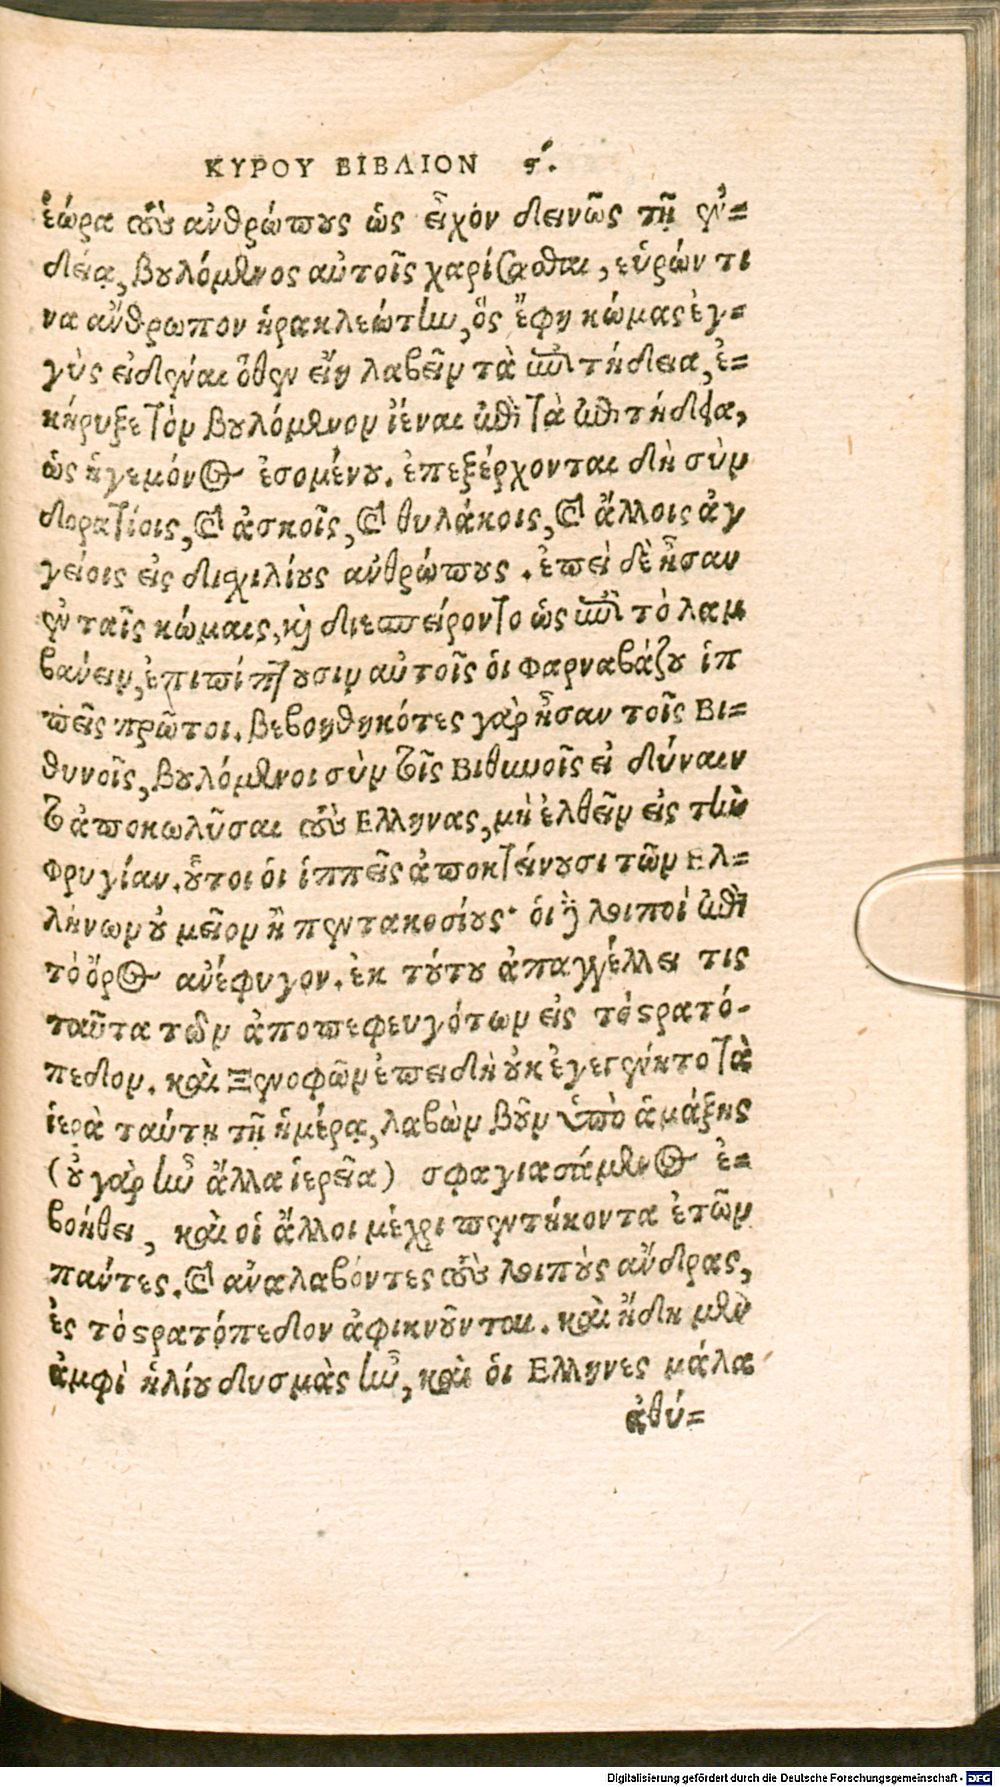 ΚΥΡΟΥ ΒΙΒΛΙΟΝ ϛ´.
ἑώρα τοὺς ἀνθρώπους ὡς εἶχον δεινῶς τῇ ἐν=
δείᾳ, βουλόμενος αὐτοῖς χαρίζεσθαι, εὑρών τι
να ἄνθρωπον ἡρακλεώτην, ὅς ἔφη κώμας ἐγ=
γὺς εἰδέναι ὅθεν εἴη λαβεῖν τὰ ἐπιτήδεια, ἐ=
κήρυξε τὸν βουλόμενον ἰέναι ἐπὶ τὰ ἐπιτήδεια,
ὡς ἡγεμόνος ἐσομένου. ἐπεξέρχονται δὴ σὺν
δορατίοις, καὶ ἀσκοῖς, καὶ θυλάκοις, καὶ ἄλλοις ἀγ
γείοις εἰς δισχιλίους ἀνθρώπους. ἐπεὶ δὲ ἦσαν
ἐν ταῖς κώμαις, καὶ διεσπείροντο ὡς ἐπὶ τὸ λαμ
βάνειν, ἐπιπίπτουσιν αὐτοῖς ὁι Φαρναβάζου ἱπ
πεῖς πρῶτοι. βεβοηθηκότες γὰρ ἦσαν τοῖς Βι=
θυνοῖς, βουλόμενοι σὺν τοῖς Βιθυνοῖς εἰ δύναιν
το ἀποκωλῦσαι τοὺς Ελληνας, μὴ ἐλθεῖν εἰς τὴν
Φρυγίαν. οὗτοι ὁι ἱππεῖς ἀποκτείνουσι τῶν Ελ=
λήνων οὐ μεῖον ἢ πεντακοσίους· ὁι δὲ λοιποί ἐπὶ
τὸ ὄρος ἀνέφυγον. ἐκ τούτου ἀπαγγέλλει τις
ταῦτα τῶν ἀποπεφευγότων εἰς τὸ στρατό-
πεδον. καὶ Ξενοφῶν ἐπειδὴ οὐκ ἐγεγένητο τὰ
ἱερὰ ταύτῃ τῇ ἡμέρᾳ, λαβὼν βοῦν ὑπὸ ἁμάξης
(οὐ γὰρ ἦν ἄλλα ἱερεῖα) σφαγιασάμενος ἐ=
βοήθει, καὶ οἱ ἄλλοι μέχρι πεντήκοντα ἐτῶν
πάντες. καὶ ἀναλαβόντες τοὺς λοιποὺς ἄνδρας,
ἐς τὸ στρατόπεδον ἀφικνοῦνται. καὶ ἤδη μὲν
ἀμφὶ ἡλίου δυσμὰς ἦν, καὶ ὁι Ελληνες μάλα
ἀθύ=
Digitalisierung gefördert durch die Deutsche Forschungsgemeinschaft - DFG